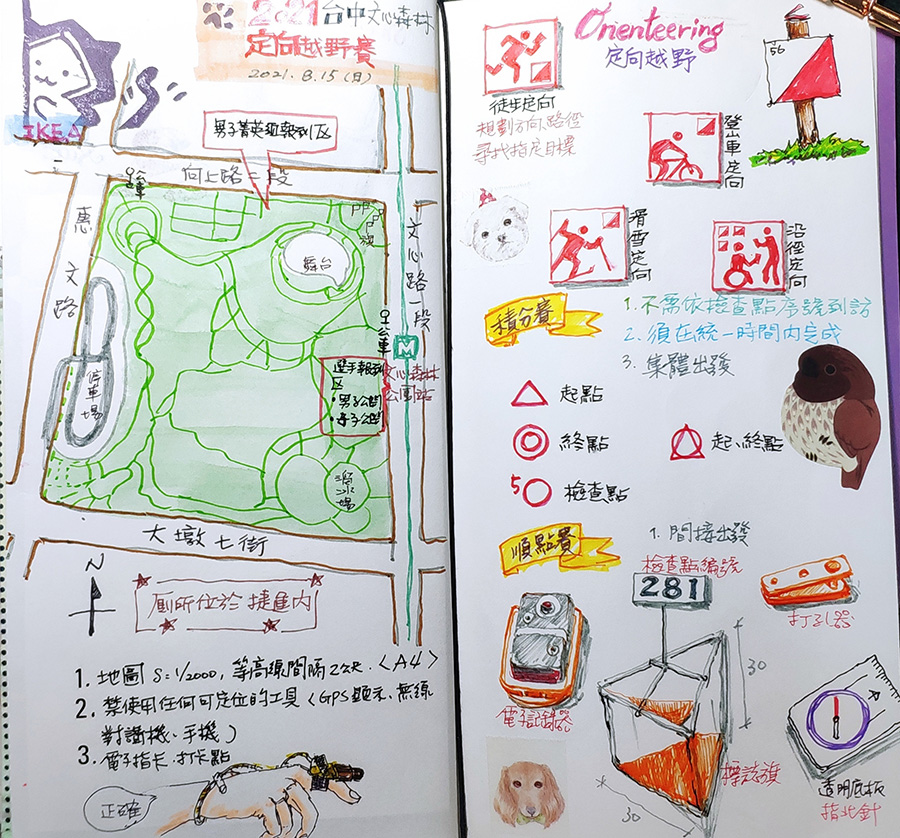 2021台中文心森林
定向越野賽
2021.8.15(日)
IKEA
男子菁英組報到区
向上路一段
公車
惠文路
舞台
文心路一段
公車
M
文心森林
公園站
選手報到
区
・男子公開
・女子公開
停車場
溜冰場
大墩七街
N
厠所位於捷運內
1. 地圖 S=1/2000, 等高線間隔2公尺.<A4>
2. 禁使用任何可定位的工具(GPS顯示、無線
對講機、手機)
3. 電子指卡.打卡點
正確
Orienteering
定向越野
56
徒步定向
規劃方向、路徑
尋找指定目標
登山車定向
滑雪定向
沿徑定向
積分賽
1. 不需依檢查點序號到訪
2. 須在統一時間內完成
3. 集體出發
起點
終點
起、終點
5
檢查點
順點賽
1. 間接出發
檢查點編號
281
打孔器
電子記錄器
30
30
標誌旗
透明底板
指北針